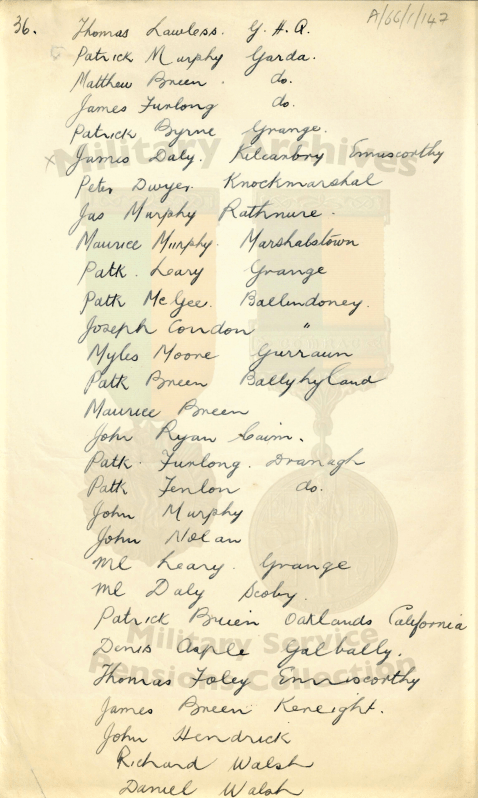 36.
A/66/1/147
Thomas Lawless. G. H. Q.
Patrick Murphy Garda.
Matthew Breen. do.
James Furlong do.
Patrick Byrne Grange.
x James Daly. Kilcarbry Enniscorthy
Military Archives
Peter Dwyer. Knockmarshal
Jas Murphy Rathnure.
Maurice Murphy. Marshalstown
Patk. Leary Grange
Patk McGee. Ballindoney.
Joseph Condon "
Myles Moore Gurraun
Patk Breen Ballyhyland
Maurice Breen
John Ryan Caim.
Patk. Furlong. Dranagh
Patk Fenlon do.
John Murphy
John Nolan
Ml Leary. Grange
Ml Daly Scoby.
Patrick Brien Oaklands California
Military Service
Denis Asple Galbally.
Pensions Collection
Thomas Foley Enniscorthy
James Breen Kereight.
John Hendrick
Richard Walsh
Daniel Walsh